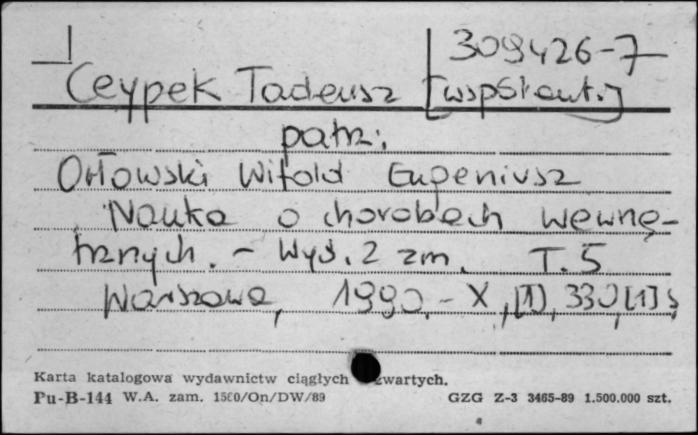 309426-7
Ceypek Tadeusz [współaut.]
patrz:
Orłowski Witold Eugeniusz
Nauka o chorobach wewnę-
trznych. - Wyd. 2 zm. T. 5
Warszawa, 1990. - X, [1], 330, [1] s
Karta katalogowa wydawnictw ciągłych zwartych.
Pu-B-144 W.A. zam. 1580/On/DW/89 GZG Z-3 3465-89 1.500.000 szt.